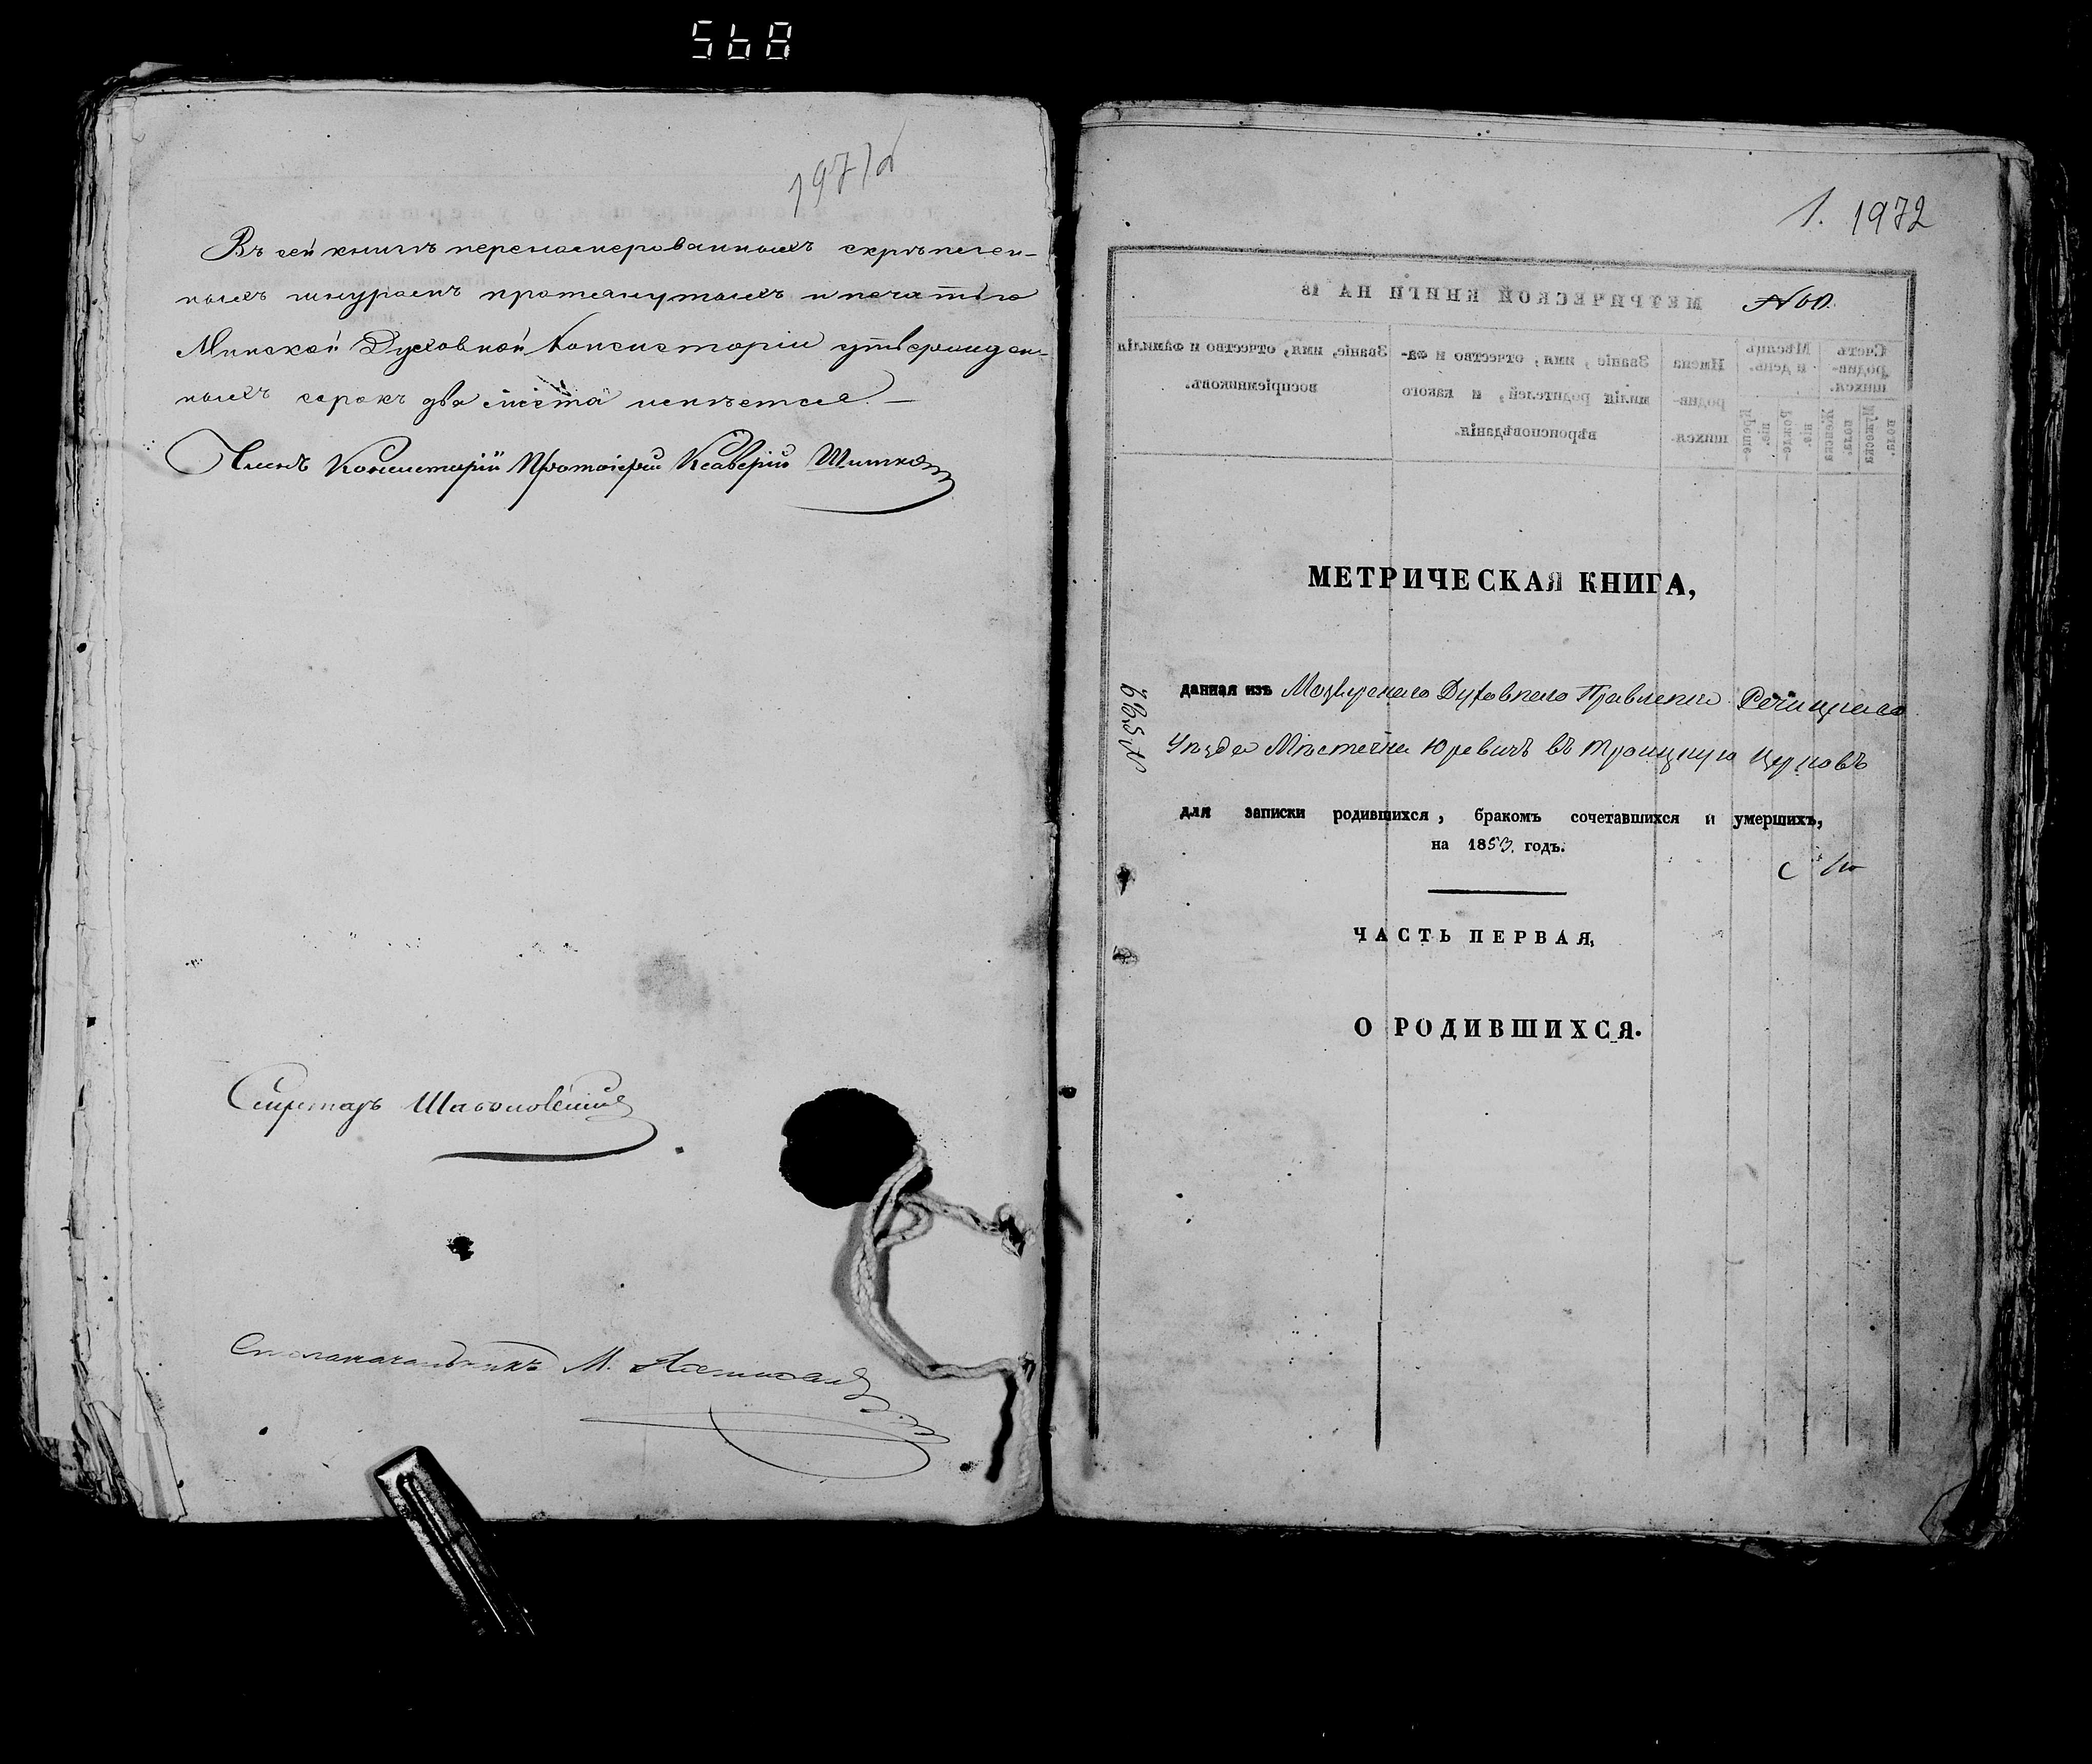 568
Въ сей книгѣ перенамерованныхъ скрѣплен-
ныхъ шнуромъ протянутыхъ и печатью
Минской Духовной Консисторіи утвержден-
ныхъ сорокъ два листа имѣется.—
Членъ Консисторіи Протоіерей Ксаверій
Секретарь
Столоначальникъ М.
1. 1972
МЕТРИЧЕСКОЙ КНИГИ НА 18
№ 60.
Счетъ родив-шихся.
Мѣсяцъ и день.
Имена родив-шихся.
Званіе, имя, отчество и фа-милія родителей, и какого вѣроисповѣданія.
Званіе, имя, отчество и фамилія воспріемниковъ.
Мужеска пола.
Женска пола.
Рожде-нія.
Креще-нія.
МЕТРИЧЕСКАЯ КНИГА,
данная изъ Мозырскаго Духовнаго Правленія Речицкаго
Уѣзда Мѣстечка Юревичъ въ Троицкую Церковь
для записки родившихся, бракомъ сочетавшихся и умершихъ,
на 1853. годъ.
ЧАСТЬ ПЕРВАЯ,
О РОДИВШИХСЯ.